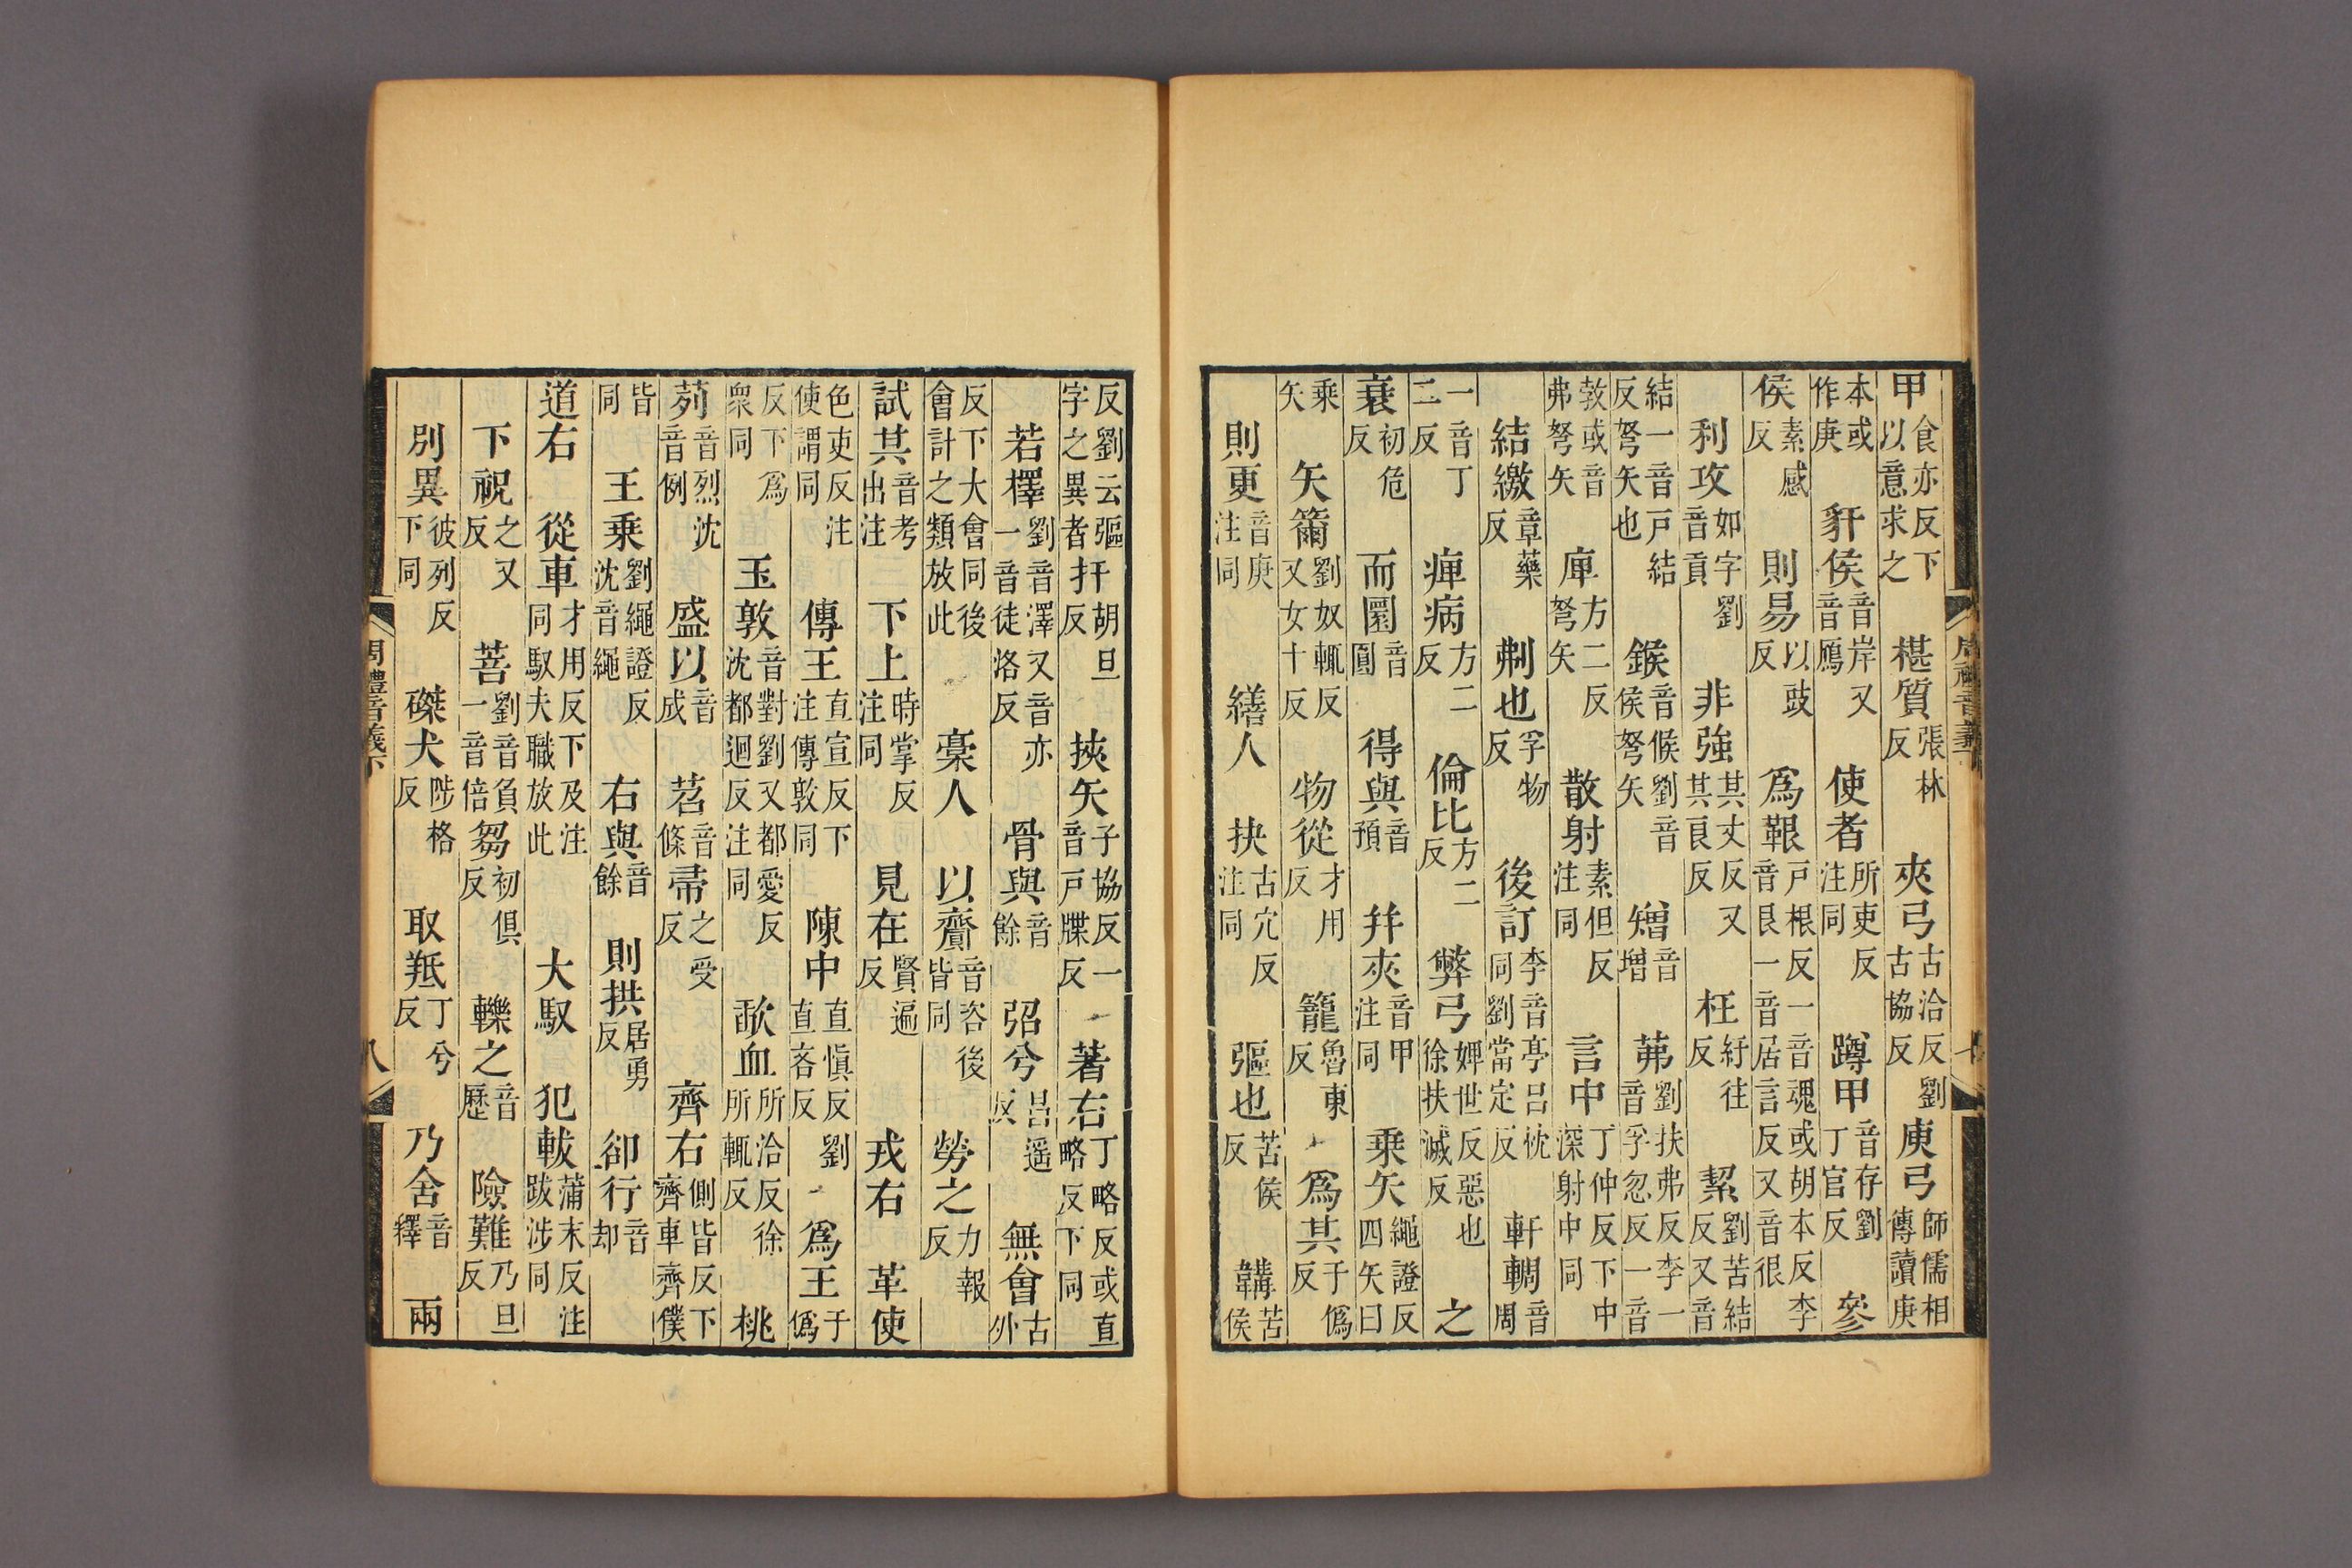 甲食亦反下以意求之椹質張林反夾弓古洽反劉古協反庾弓師儒相傳讀庾
本或作庚豻侯音岸又音鴈使者所吏反注同蹲甲音存劉丁官反參
侯素感反則易以豉反爲艱戸根反一音魂或胡本反李音艮一音居言反又音很
利攻如字劉音貢非強其丈反又其良反枉紆往反絜劉苦結反又音
結一音戸結反弩矢也鍭音候劉音侯弩矢矰音增茀劉扶弗反李一音孚忽反一音
敦或音弗弩矢庳方二反弩矢散射素但反注同言中丁仲反下中深射中同
結繳章藥反刜也孚物反後訂李音亭呂忱同劉當定反軒輖音周
一音丁二反痺病方二反倫比方二反弊弓婢世反惡也徐扶滅反之
衰初危反而圜音圓得與音預并夾音甲注同乘矢繩證反四矢曰
乘矢矢籋劉奴輒反又女十反物從才用反籠魯東反爲其于僞反
則更音庚注同繕人抉古穴反注同彄也苦侯反韝苦侯
反劉云彄字之異者扞胡旦反挾矢子協反一音戸牒反著右丁略反或直略反下同
若檡劉音澤又音亦一音徒洛反骨與音餘弨兮呂遥反無會古外
反下大會同後會計之類放此槀人以齎音咨後皆同勞之力報反
試其音考出注下上時掌反注同見在賢遍反戎右革使
色吏反注使謂同傳王直宣反下注傳敦同陳中直愼反劉直吝反爲王于僞
反下爲衆同玉敦音對劉又都愛反沈都迴反注同歃血所洽反徐所輒反桃
茢音烈沈音例盛以音成苕音條帚之受反齊右側皆反下齊車齊僕
皆同王乘劉繩證反沈音繩右與音餘則拱居勇反卻行音却
道右從車才用反下及注同馭夫職放此大馭犯軷蒲末反注跋涉同
下祝之又反菩劉音負一音倍芻初俱反轢之音歷險難乃旦反
別異彼列反下同磔犬陟格反取羝丁兮反乃舍音釋兩
周禮音義下
八